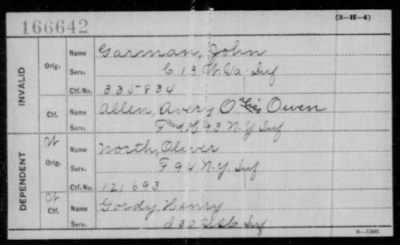 166642
(3-H-4)
INVALID
Orig.
Name Garman, John
Serv. C 13 W. Va Inf
Ctf. No. 335834
Ctf.
Name Allen, Avery Owen
Serv. 93 N.Y Inf
DEPENDENT
W
Orig.
Name North, Oliver
Serv. F 94 N.Y Inf
Ctf. No. 121693
W
Ctf.
Name Gordy Henry
Serv. Inf